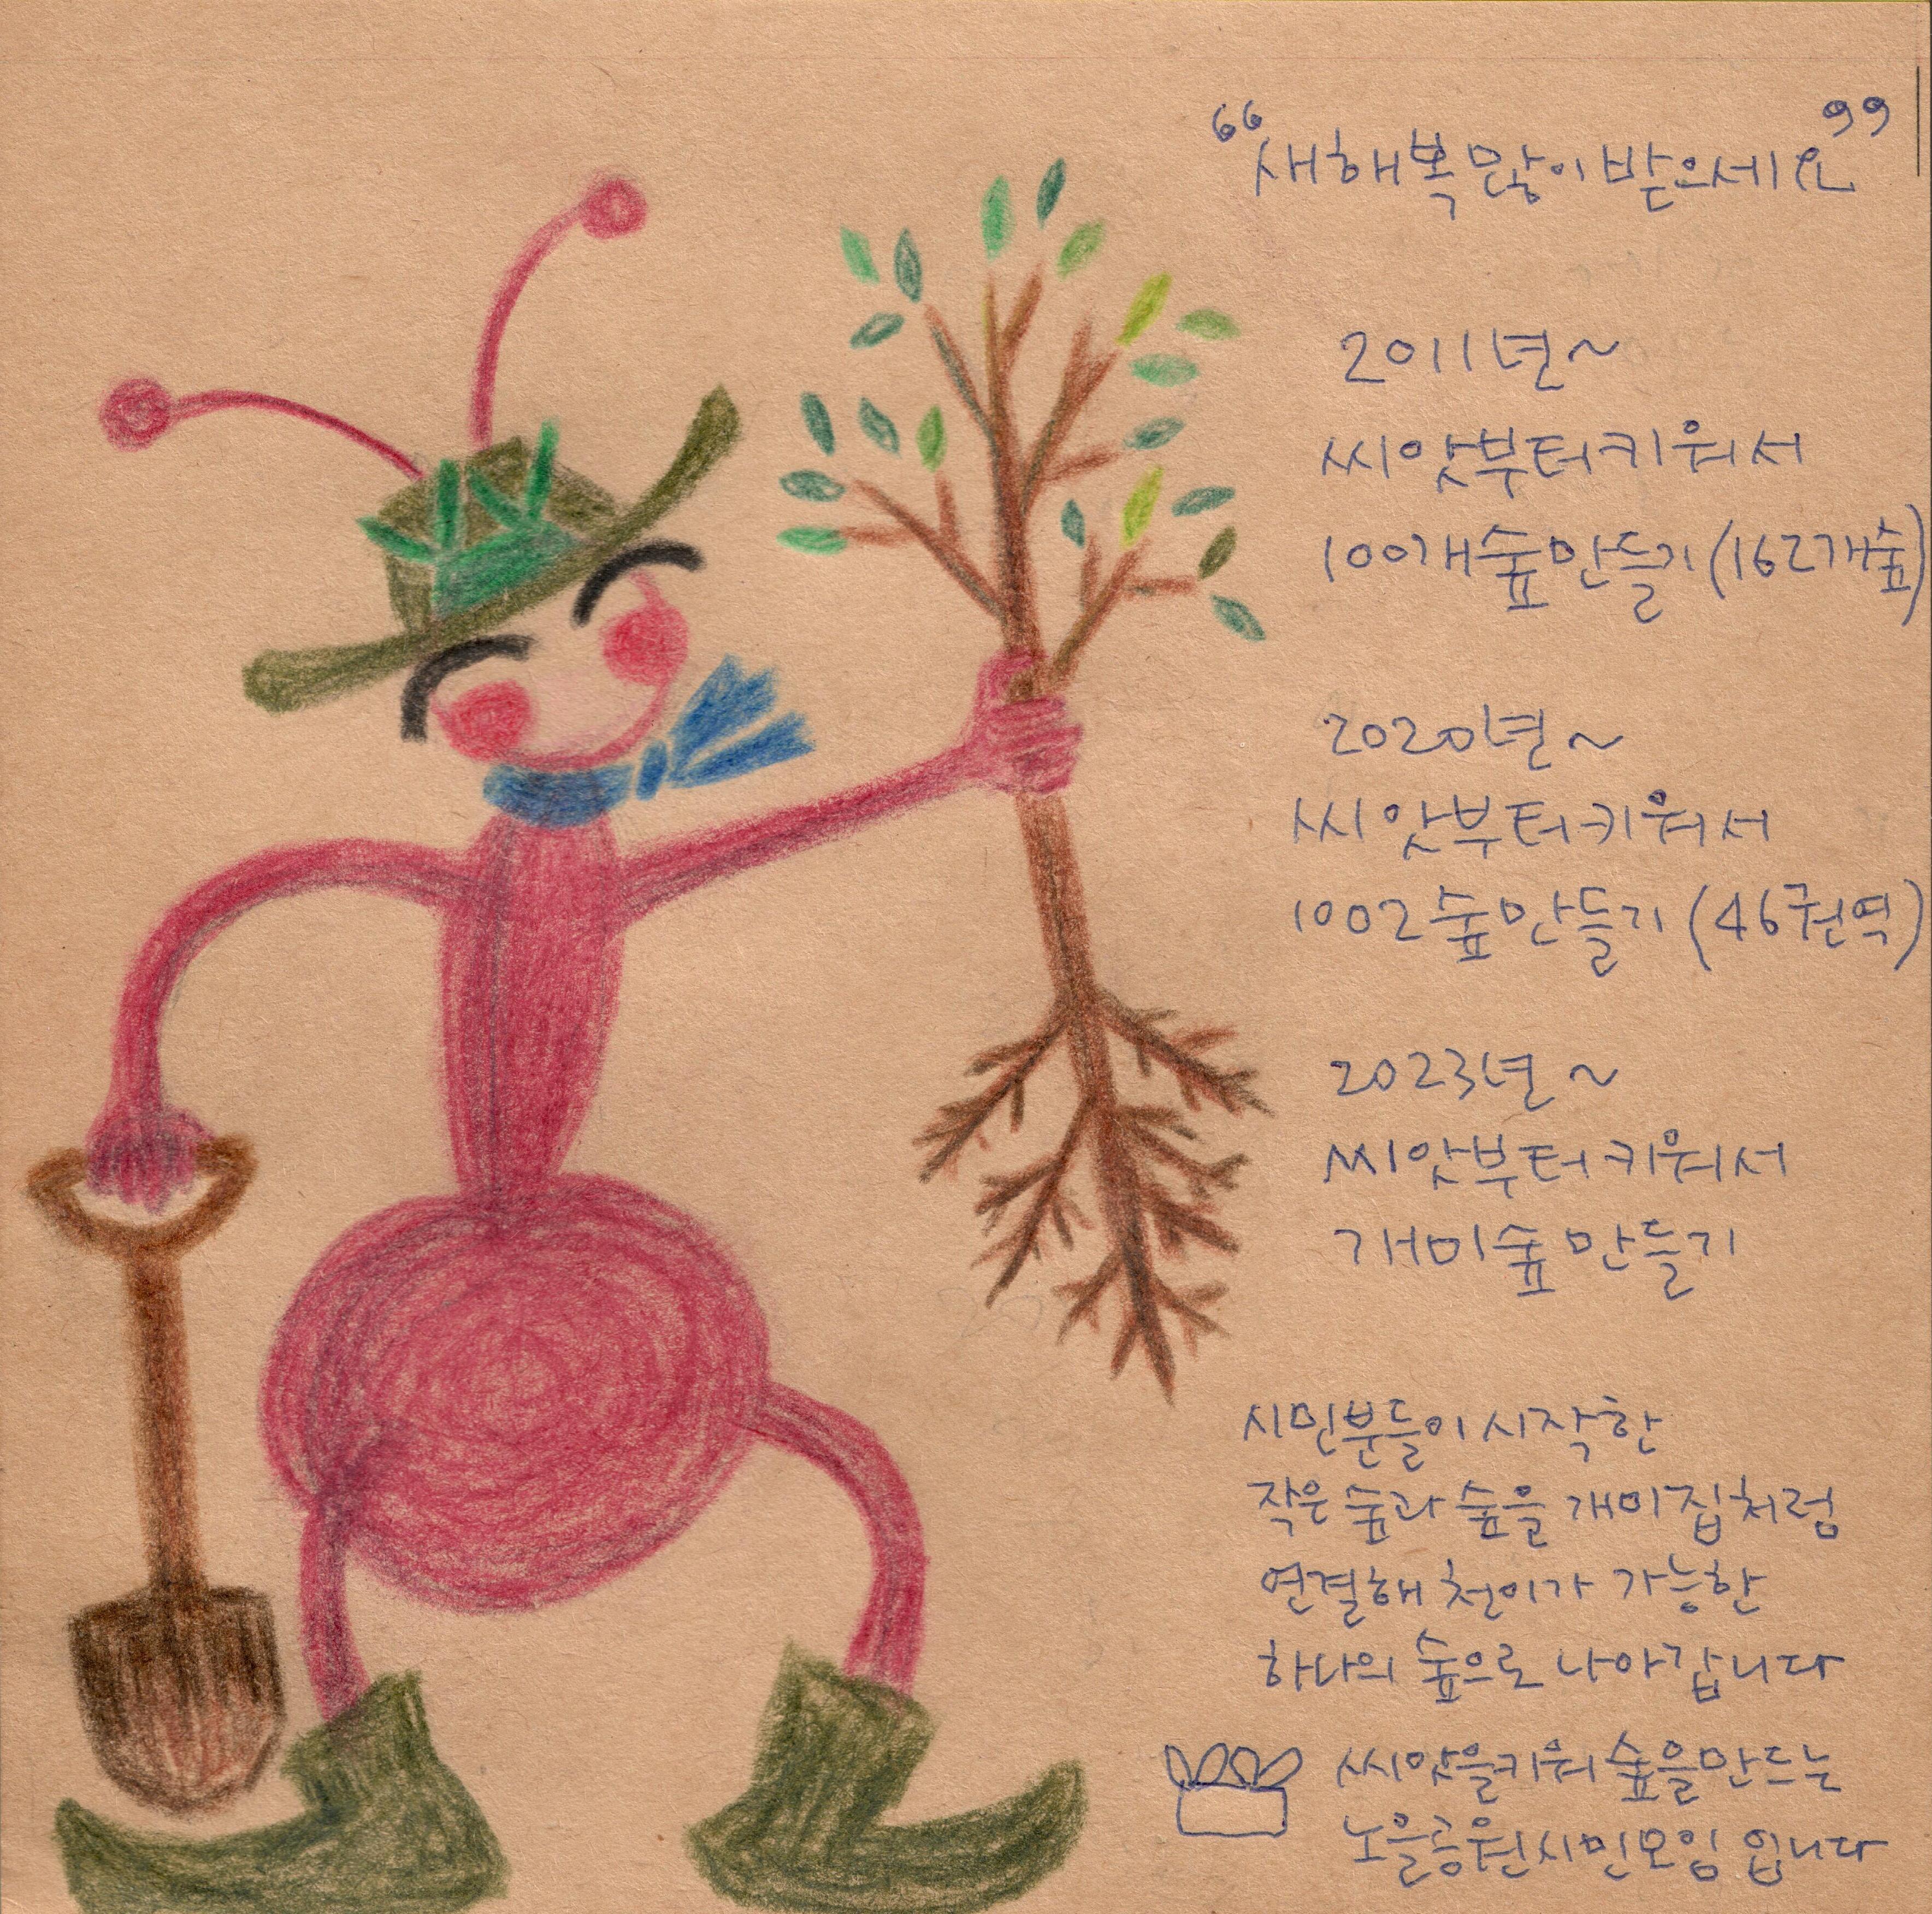 “새해복많이받으세요”
2011년~
씨앗부터키워서
100개숲만들기(162개숲)
2020년~
씨앗부터키워서
1002숲만들기(46권역)
2023년~
씨앗부터키워서
개미숲만들기
시민분들이 시작한
작은 숲과 숲을 개미집처럼
연결해 천이가 가능한
하나의 숲으로 나아갑니다
씨앗을키워 숲을만드는
노을공원시민모임 입니다